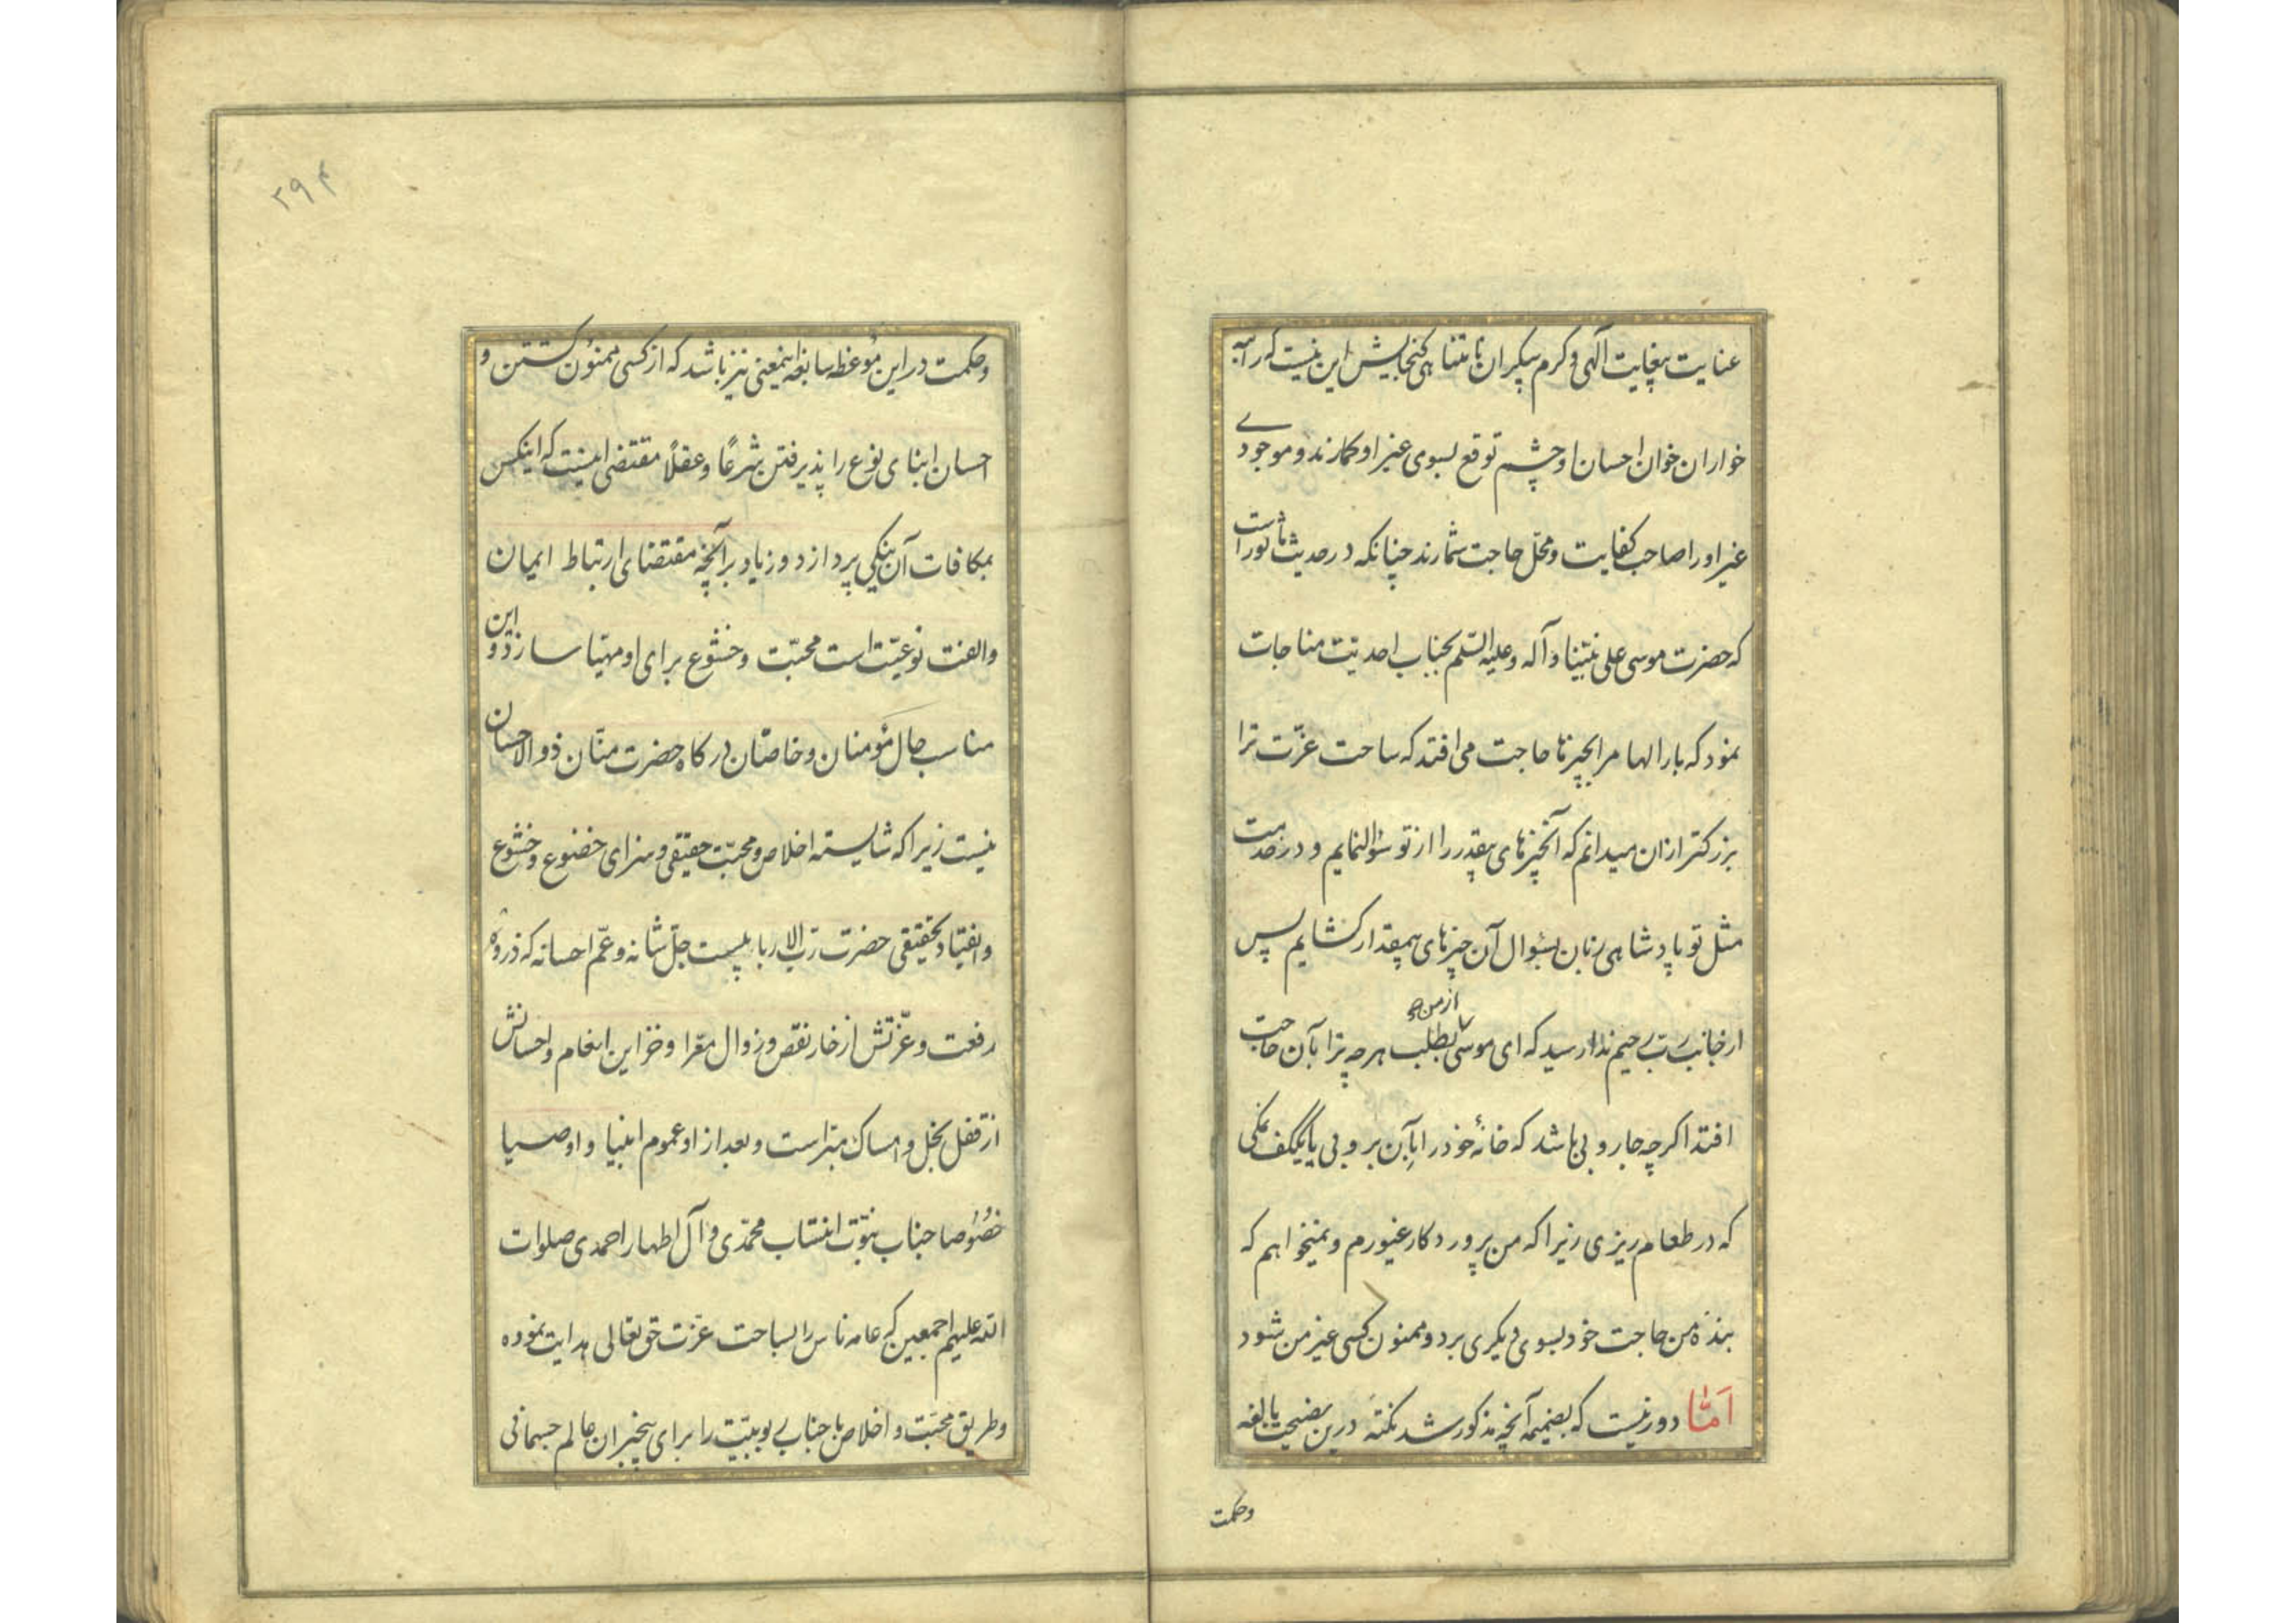 عنایت بیغایت آلهی و کرم بیکران نامتناهی گنجایش این نیست که راتبه
خواران خوان احسان او چشم توقع بسوی غیر او گمارند و موجودی
غیر او را صاحب کفایت و محلّ حاجت شمارند چنانکه در حدیث مأثور است
که حضرت موسی علی نبیّنا و آله و علیه السّلم بجناب احدیّت مناجات
نمود که بار الها مرا بچیزها حاجت می افتد که ساحت عزّت ترا
بزرکتر ازان میدانم که آنچیزهای بیقدر را از تو سؤال نمایم و در خدمت
مثل تو پادشاهی زبان بسؤال آن چیزهای بیمقدار کشایم پس
از جانب ربّ رحیم ندا رسید که ای موسی بطلب از من هر چه ترا بآن حاجت
افتد اکرچه جاروبی باشد که خانهٔ خود را بآن بروبی یا یککف نمکی
که در طعام ریزی زیرا که من پروردکار غیورم و نمیخواهم که
بندهٔ من حاجت خود بسوی دیکری برد و ممنون کسی غیر من شود
امّا دور نیست که بضمیمه آنچه مذکور شد نکتهٔ درین نصیحت بالغه
وحکمت
۲۹۴
وحکمت در این مؤعظه سابغه اینمعنی نیز باشد که از کسی ممنون کشتن و
احسان ابنای نوع را پذیرفتن شرعًا وعقلًا مقتضی اینست که اینکس
بمکافات آن نیکی پردازد و زیاد بر آنچه مقتضای ارتباط ایمان
والفت نوعیّت است محبّت وخشوع برای او مهیّا سازد و این
مناسب حال مؤمنان و خاصّان درکاه حضرت منّان ذو الاحسان
نیست زیرا که شایسته اخلاص و محبّت حقیقی و سزای خضوع وخشوع
وانقیاد تحقیقی حضرت ربّ الاربابیست جلّ شانه و عمّ احسانه که ذروهٔ
رفعت و عزّتش از خار نقص و زوال معرّا و خزاین انعام و احسانش
از قفل بخل و امساک مبرّاست و بعد از او عموم انبیا و اوصیا
خصوصا جناب نبوّت انتساب محمّدی و آل اطهار احمدی صلوات
الله علیهم اجمعین که عامه ناس را بساحت عزّت حق تعالی هدایت نموده
وطریق محبّت و اخلاص با جناب ربوبیّت را برای بیخبران عالم جسمانی